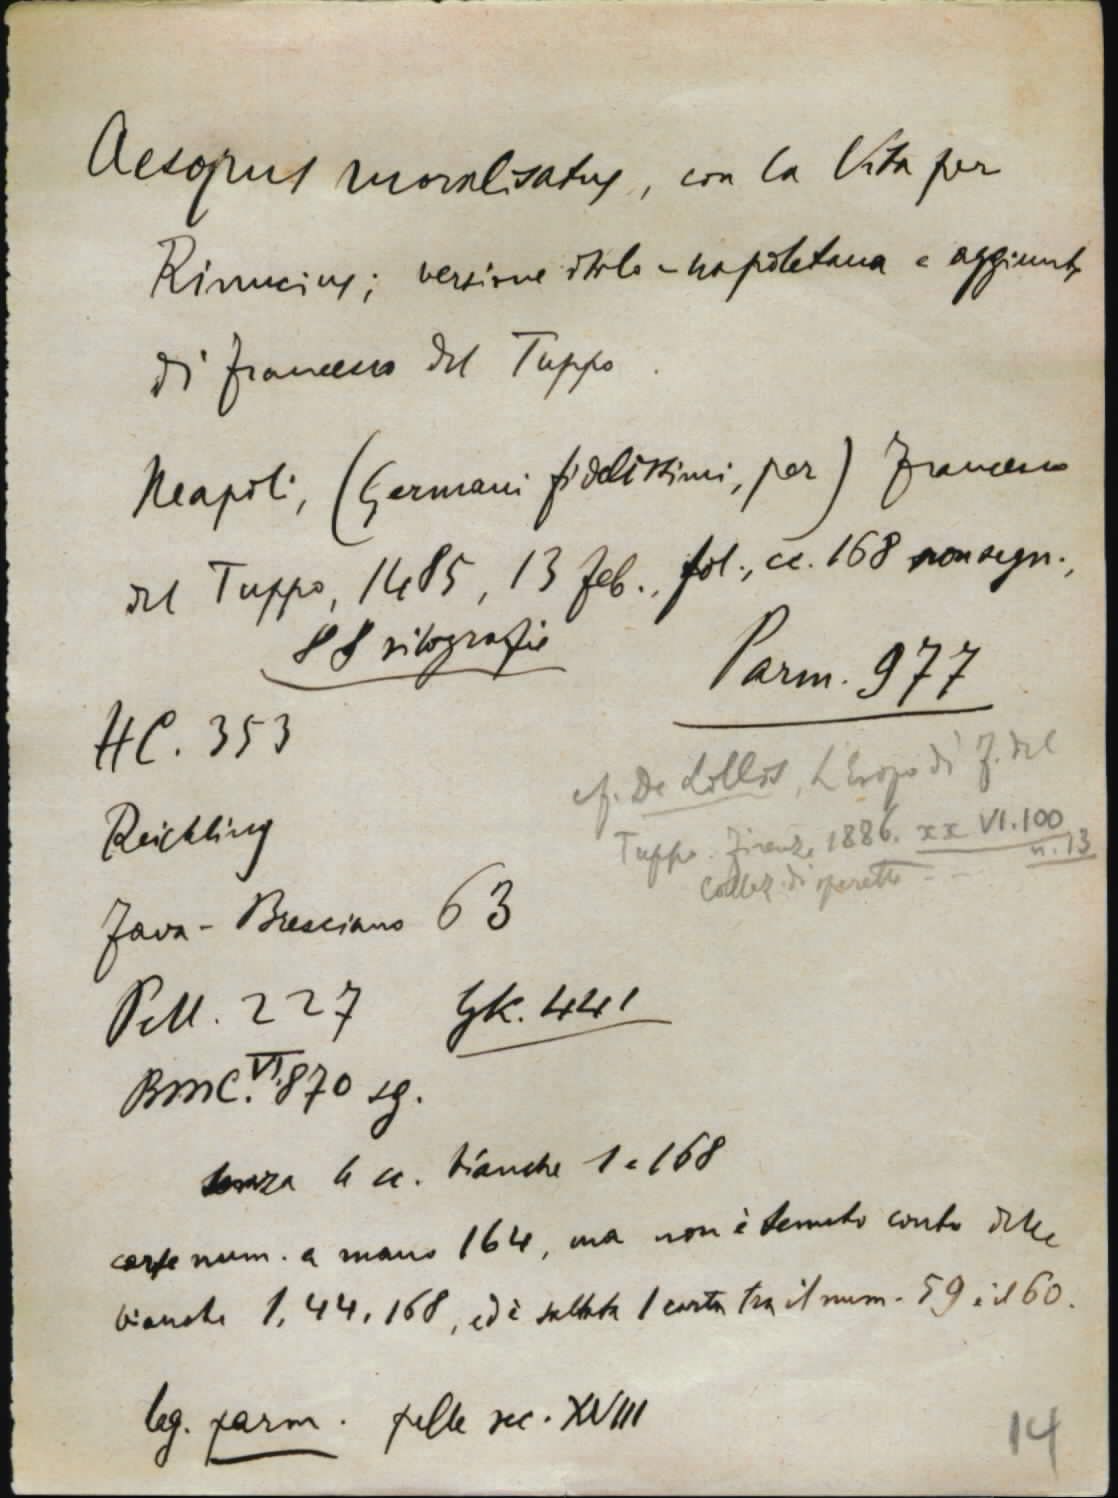 Aesopus moralisatus, con la Vita per
Rinucius; versione italo-napoletana e aggiunte
di Francesco del Tuppo.
Neapoli, (Germani fidelissimi, per) Francesco
del Tuppo, 1485, 13 Feb., fol., cc. 168 non segn.,
88 silografie
Parm. 977
HC. 353
cf. De Lollis, L'Esopo di F. del
Tuppo. Firenze 1886. xx VI.100
n. 13
Collez. di operette
Reichling
Fava-Bresciano 63
Pell. 227 GK. 441
BMC. VI. 870 sg.
senza le cc. bianche 1 e 168
carte num. a mano 164, ma non è tenuto conto delle
bianche 1, 44, 168, ed è saltata 1 carta tra il num. 59 e il 60.
leg. parm. pelle sec. XVIII
14